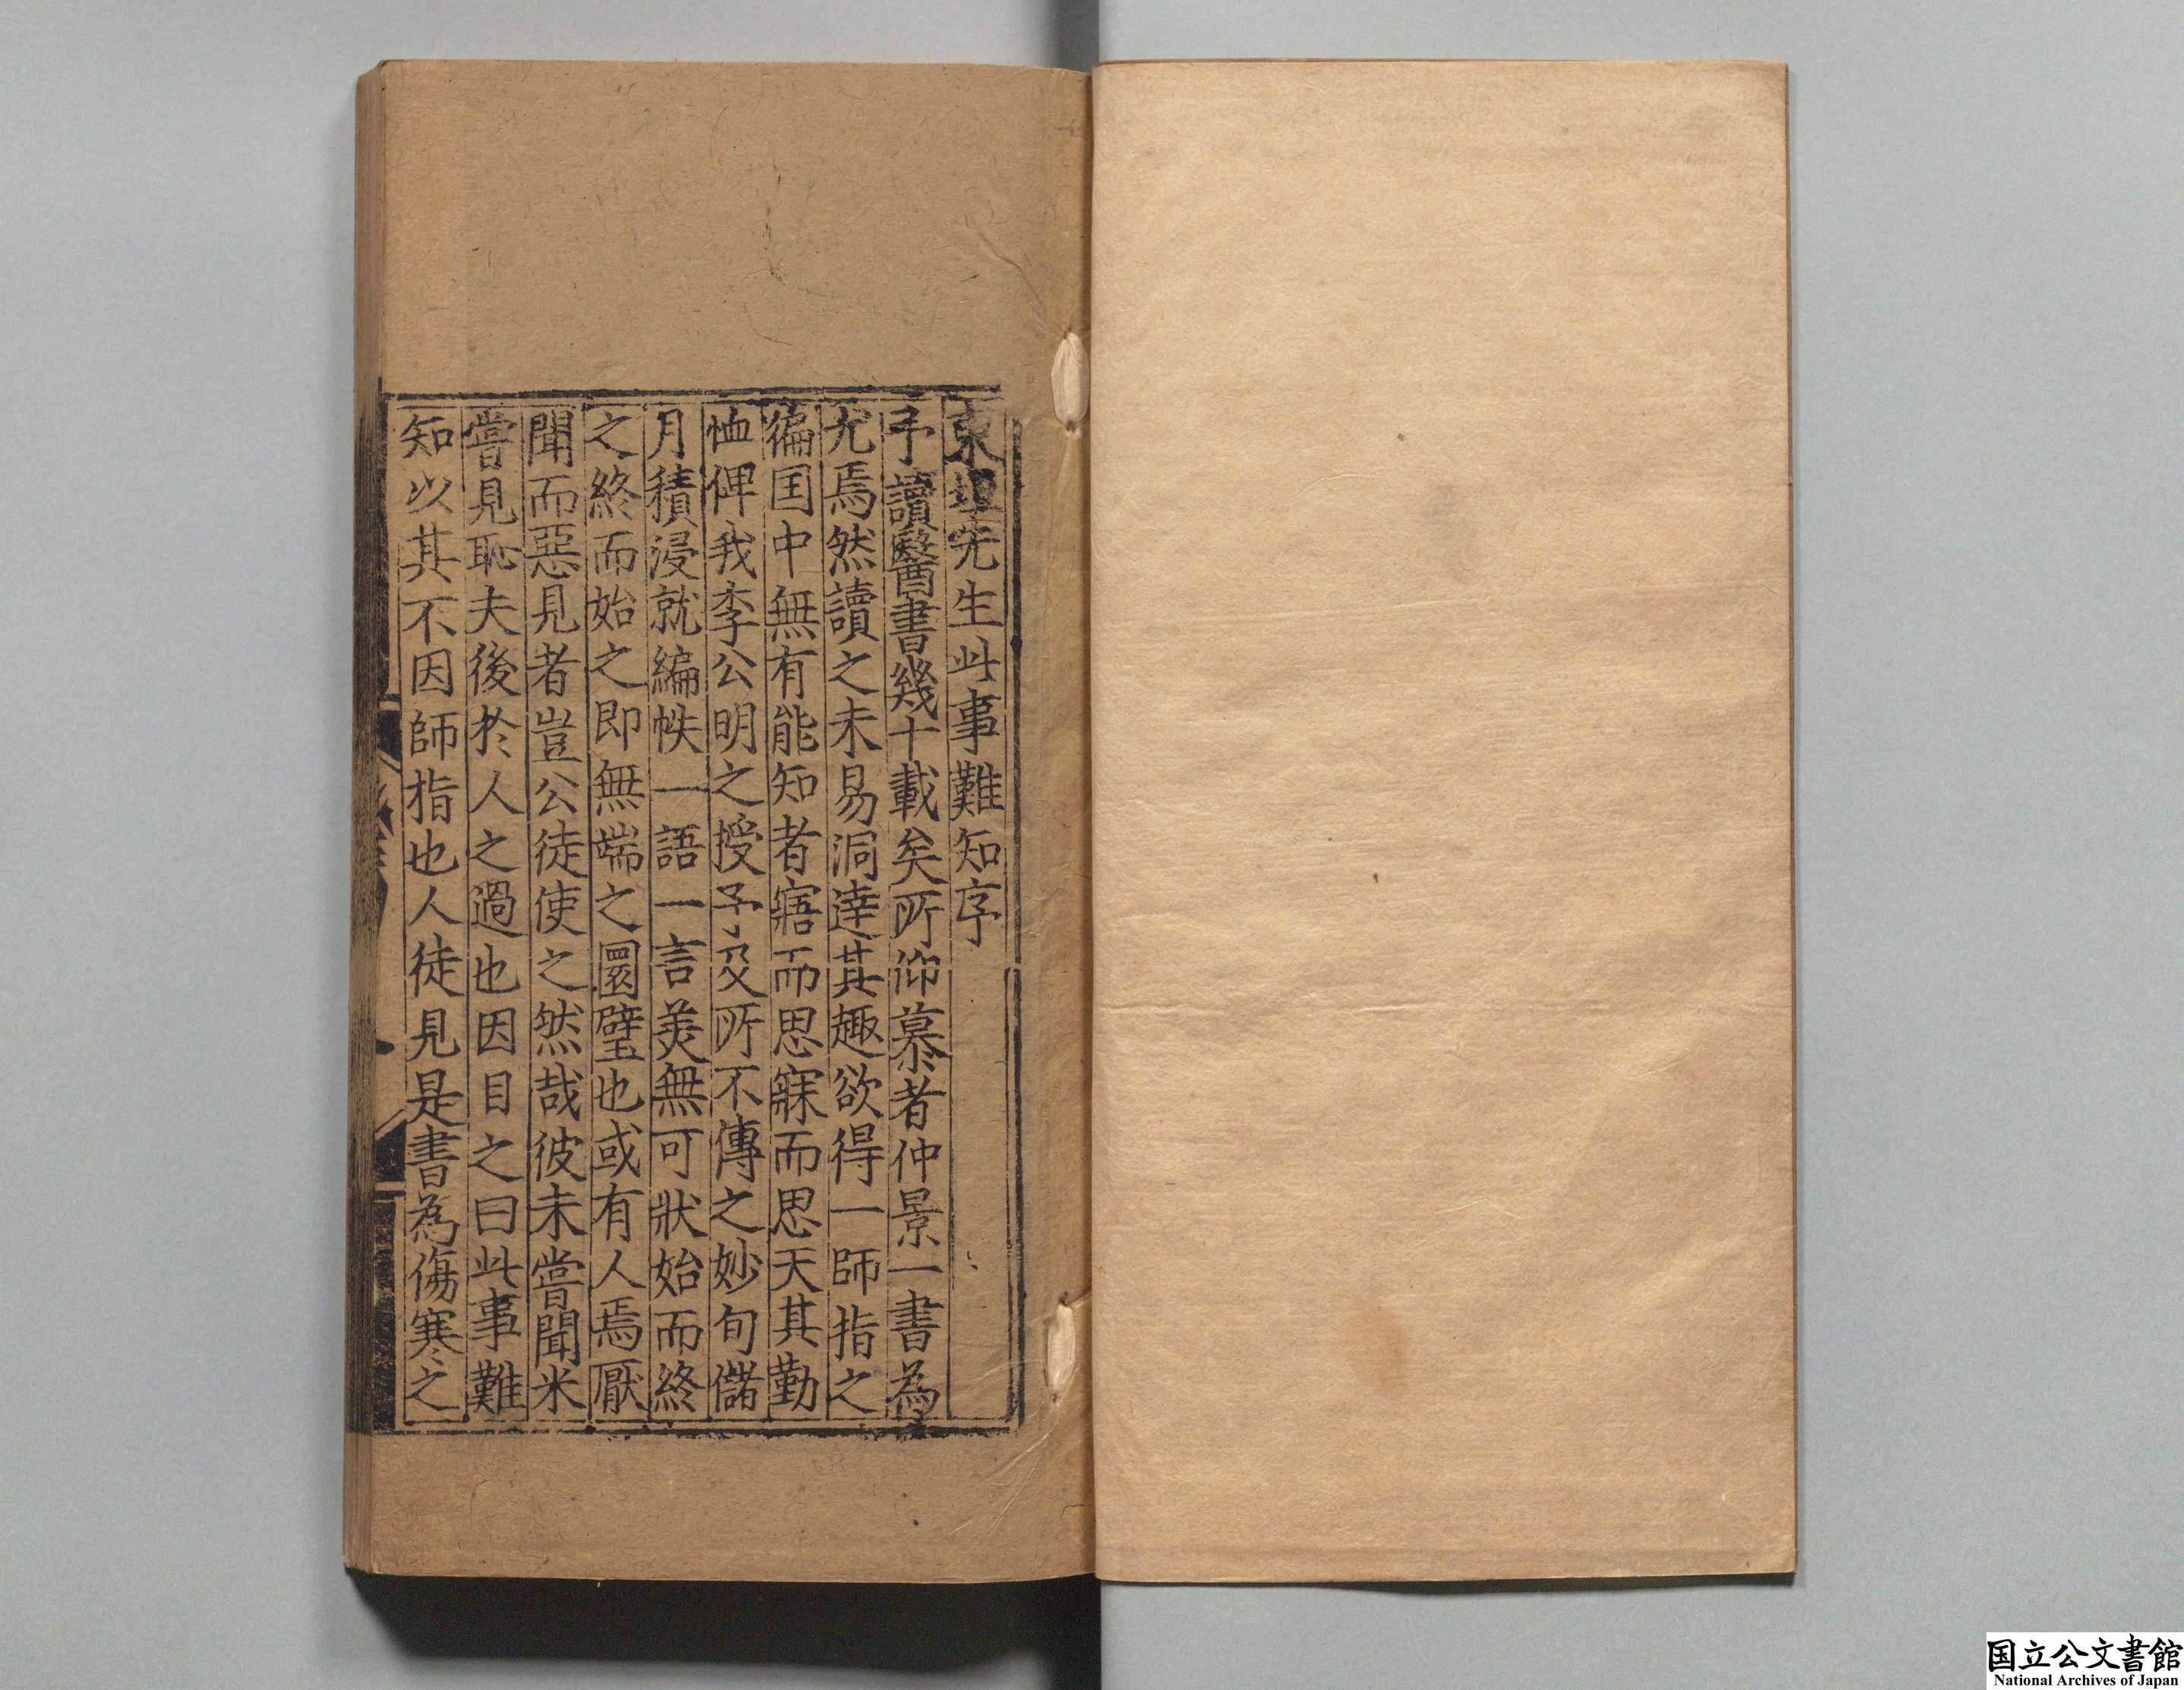 東垣先生此事難知序
予讀醫書幾十載矣所仰慕者仲景一書為
尤焉然讀之未易洞達其趣欲得一師指之
徧囯中無有能知者寤而思寐而思天其勤
恤俾我李公明之授予及所不傳之妙旬儲
月積浸就編帙一語一言美無可狀始而終
之終而始之即無端之圜璧也或有人焉厭
聞而惡見者豈公徒使之然哉彼未嘗聞米
嘗見恥夫後於人之過也因目之曰此事難
知以其不因師指也人徒見是書為傷寒之
国立公文書館
National Archives of Japan